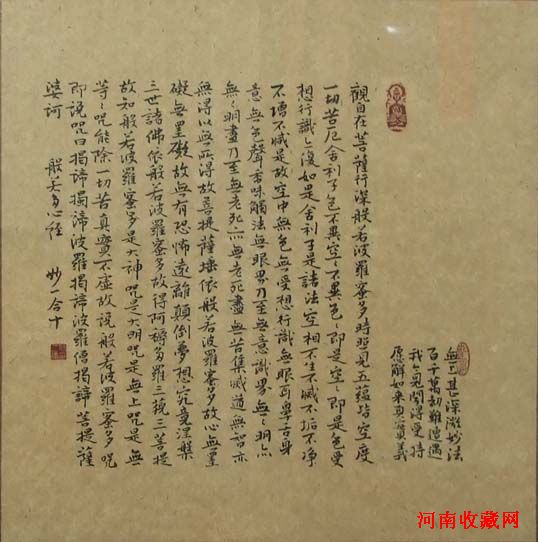 無上甚深微妙法
百千萬劫難遭遇
我今見聞得受持
願解如來真實義
觀自在菩薩行深般若波羅蜜多時照見五蘊皆空度
一切苦厄舍利子色不異空〻不異色〻即是空〻即是色受
想行識亦復如是舍利子是諸法空相不生不滅不垢不净
不增不減是故空中無色無受想行識無眼耳鼻舌身
意無色聲香味觸法無眼界乃至無意識界無〻明亦
無〻明盡乃至無老死亦無老死盡無苦集滅道無智亦
無得以無所得故菩提薩埵依般若波羅蜜多故心無罣
礙無罣礙故無有恐怖遠離顛倒夢想究竟涅槃
三世諸佛依般若波羅蜜多故得阿耨多羅三藐三菩提
故知般若波羅蜜多是大神咒是大明咒是無上咒是無
等〻咒能除一切苦真實不虛故說般若波羅蜜多咒
即說咒曰揭諦揭諦波羅揭諦波羅僧揭諦菩提薩
婆訶 般若多心經 妙一合十
河南收藏网